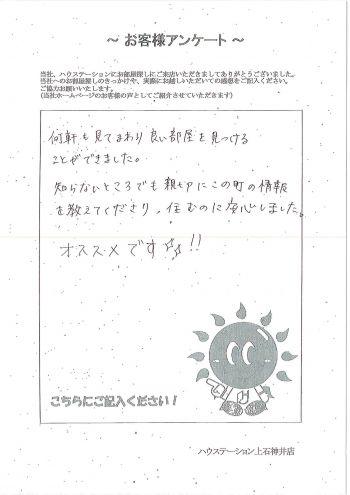 ～ お客様アンケート ～
当社、ハウステーションにお部屋探しにご来店いただきましてありがとうございました。
当社へのお部屋探しのきっかけや、実際にお越しいただいての感想をご記入ください。
ご協力お願いいたします。
(当社ホームページのお客様の声としてご紹介させていただきます)
何軒も見てまわり良い部屋を見つける
ことができました。
知らないところでも親切にこの町の情報
を教えてくださり、住むのに安心しました。
オススメです☆☆!!
こちらにご記入ください！
ハウステーション上石神井店